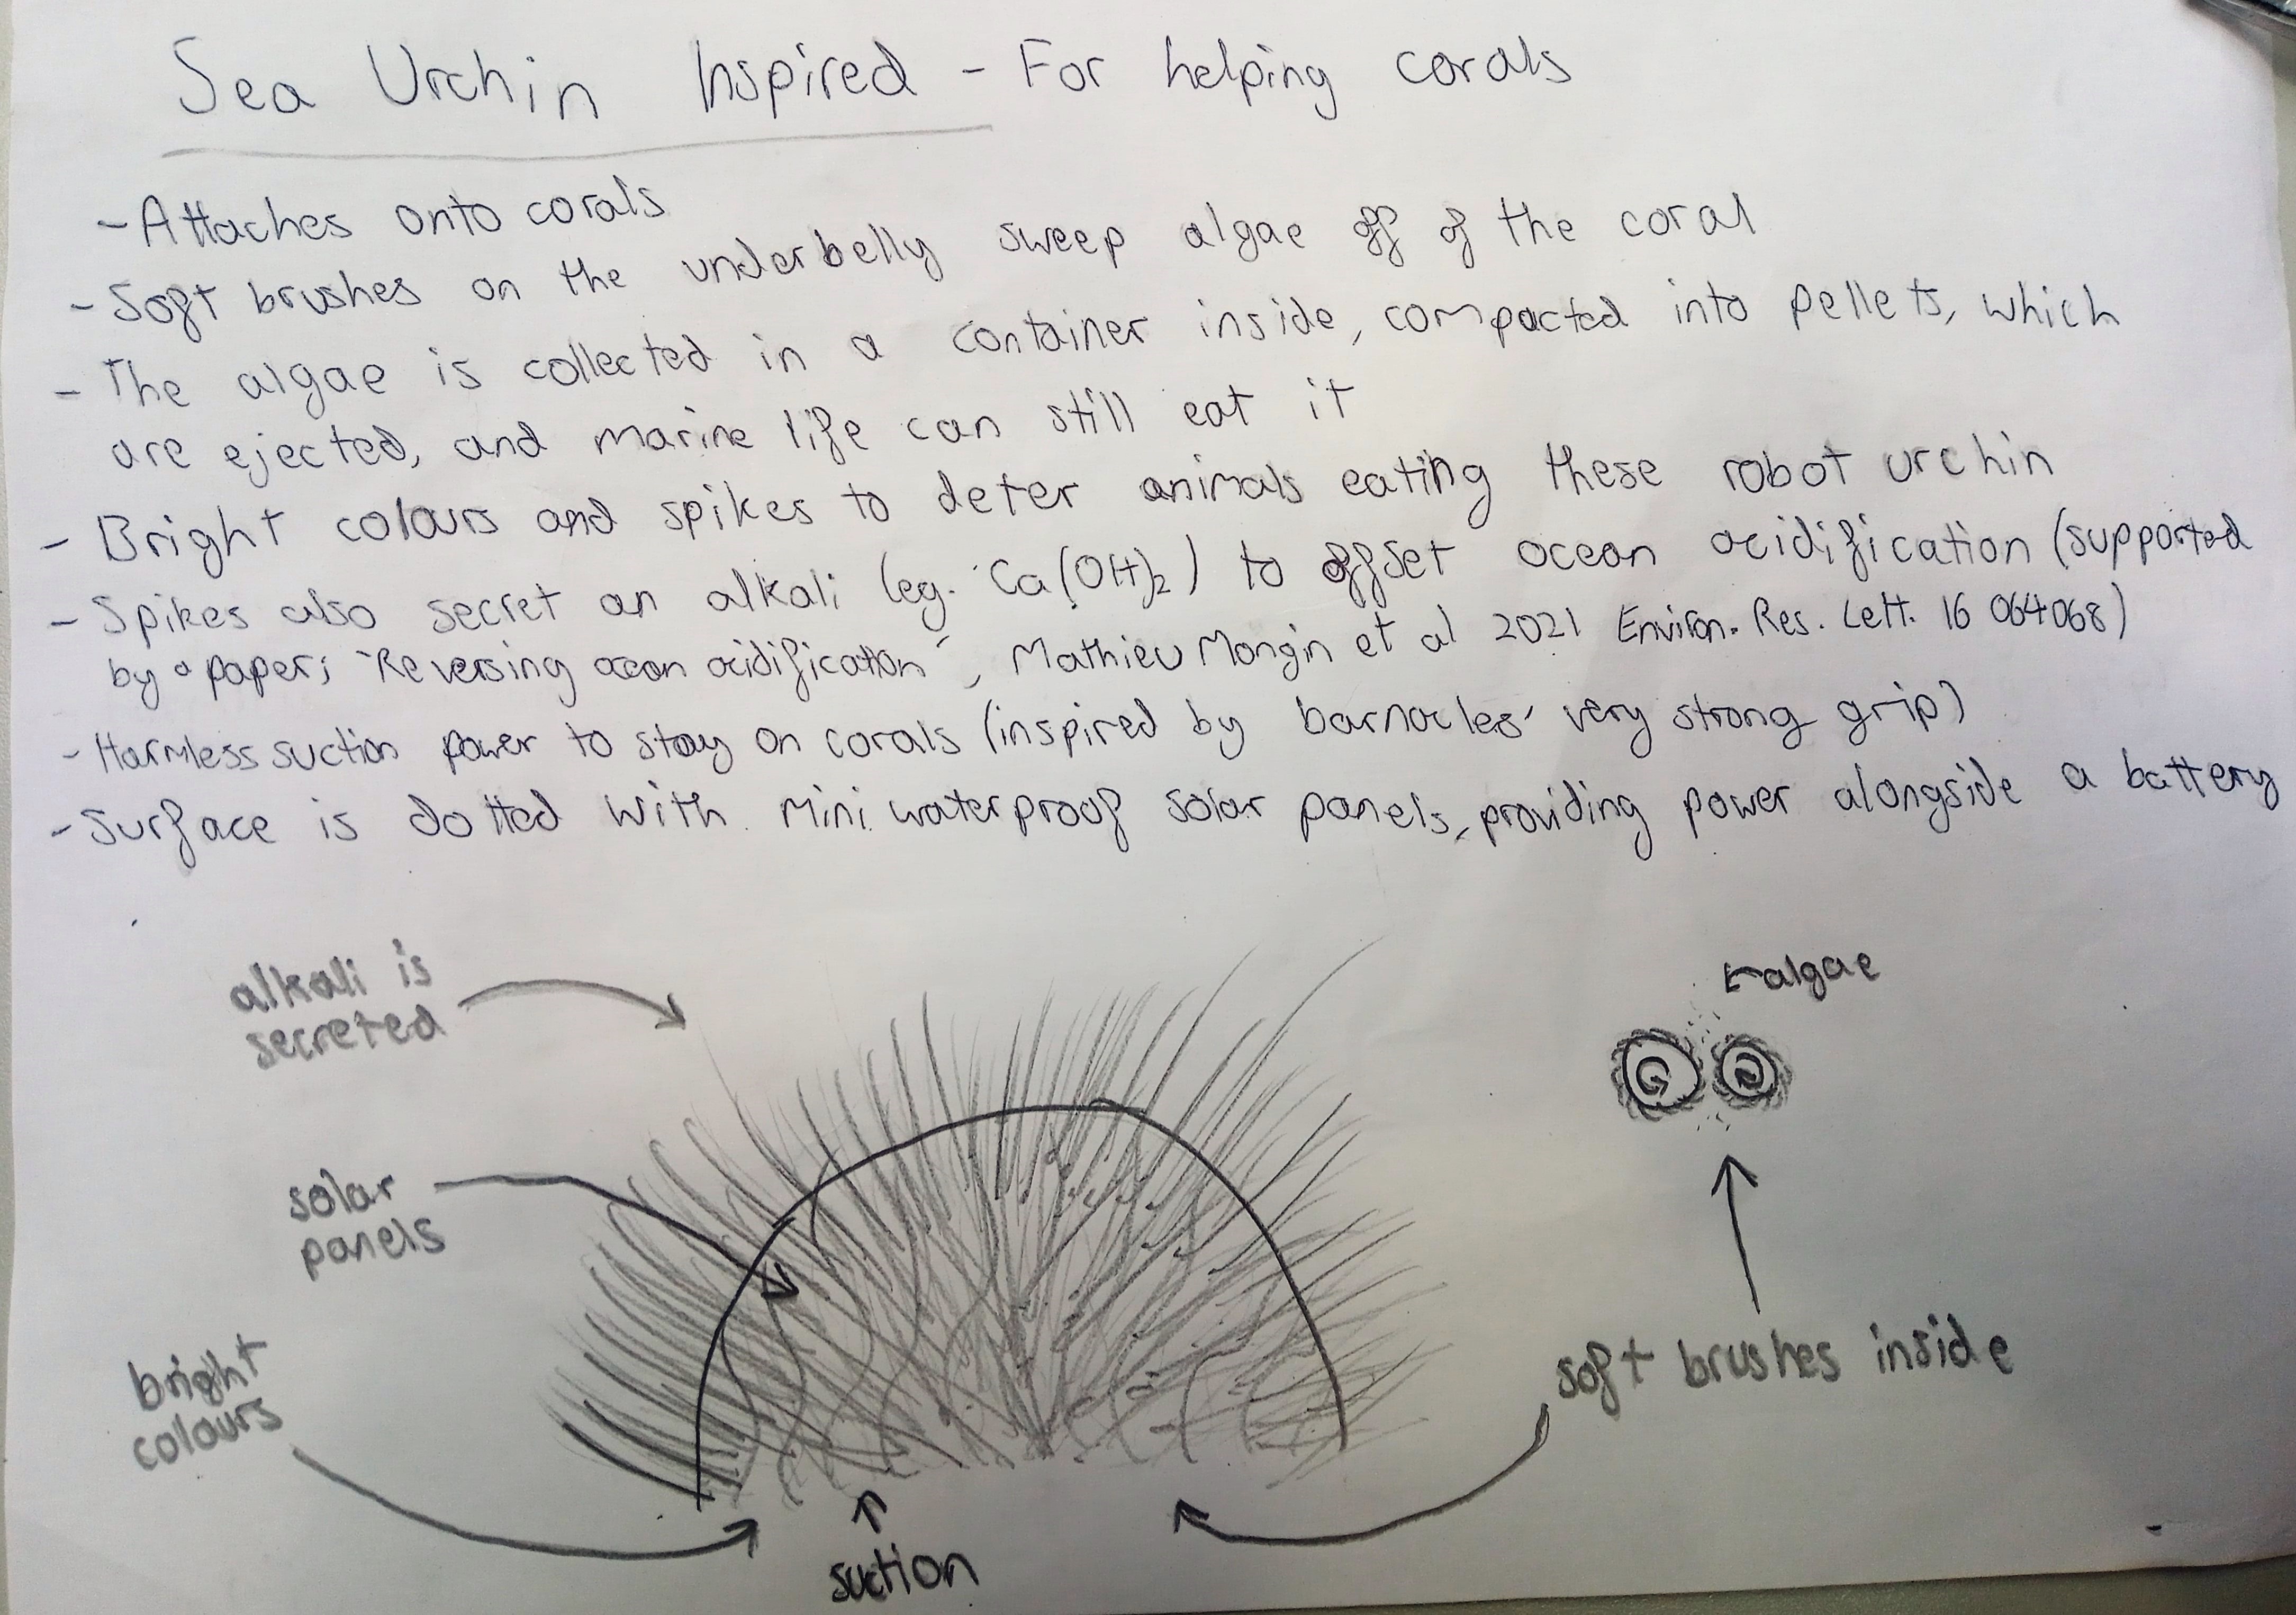 Sea Urchin Inspired - For helping corals
- Attaches onto corals
- Soft brushes on the underbelly sweep algae off of the coral
- The algae is collected in a container inside, compacted into pellets, which
are ejected, and marine life can still eat it
- Bright colours and spikes to deter animals eating these robot urchin
- Spikes also secret an alkali (eg. Ca(OH)2) to offset ocean acidification (supported
by a paper; "Reversing ocean acidification", Mathieu Mongin et al 2021 Environ. Res. Lett. 16 064068)
- Harmless suction power to stay on corals (inspired by barnacles' very strong grip)
- Surface is dotted with mini waterproof solar panels, providing power alongside a battery
alkali is
secreted
algae
solar
panels
bright
colours
soft brushes inside
suction